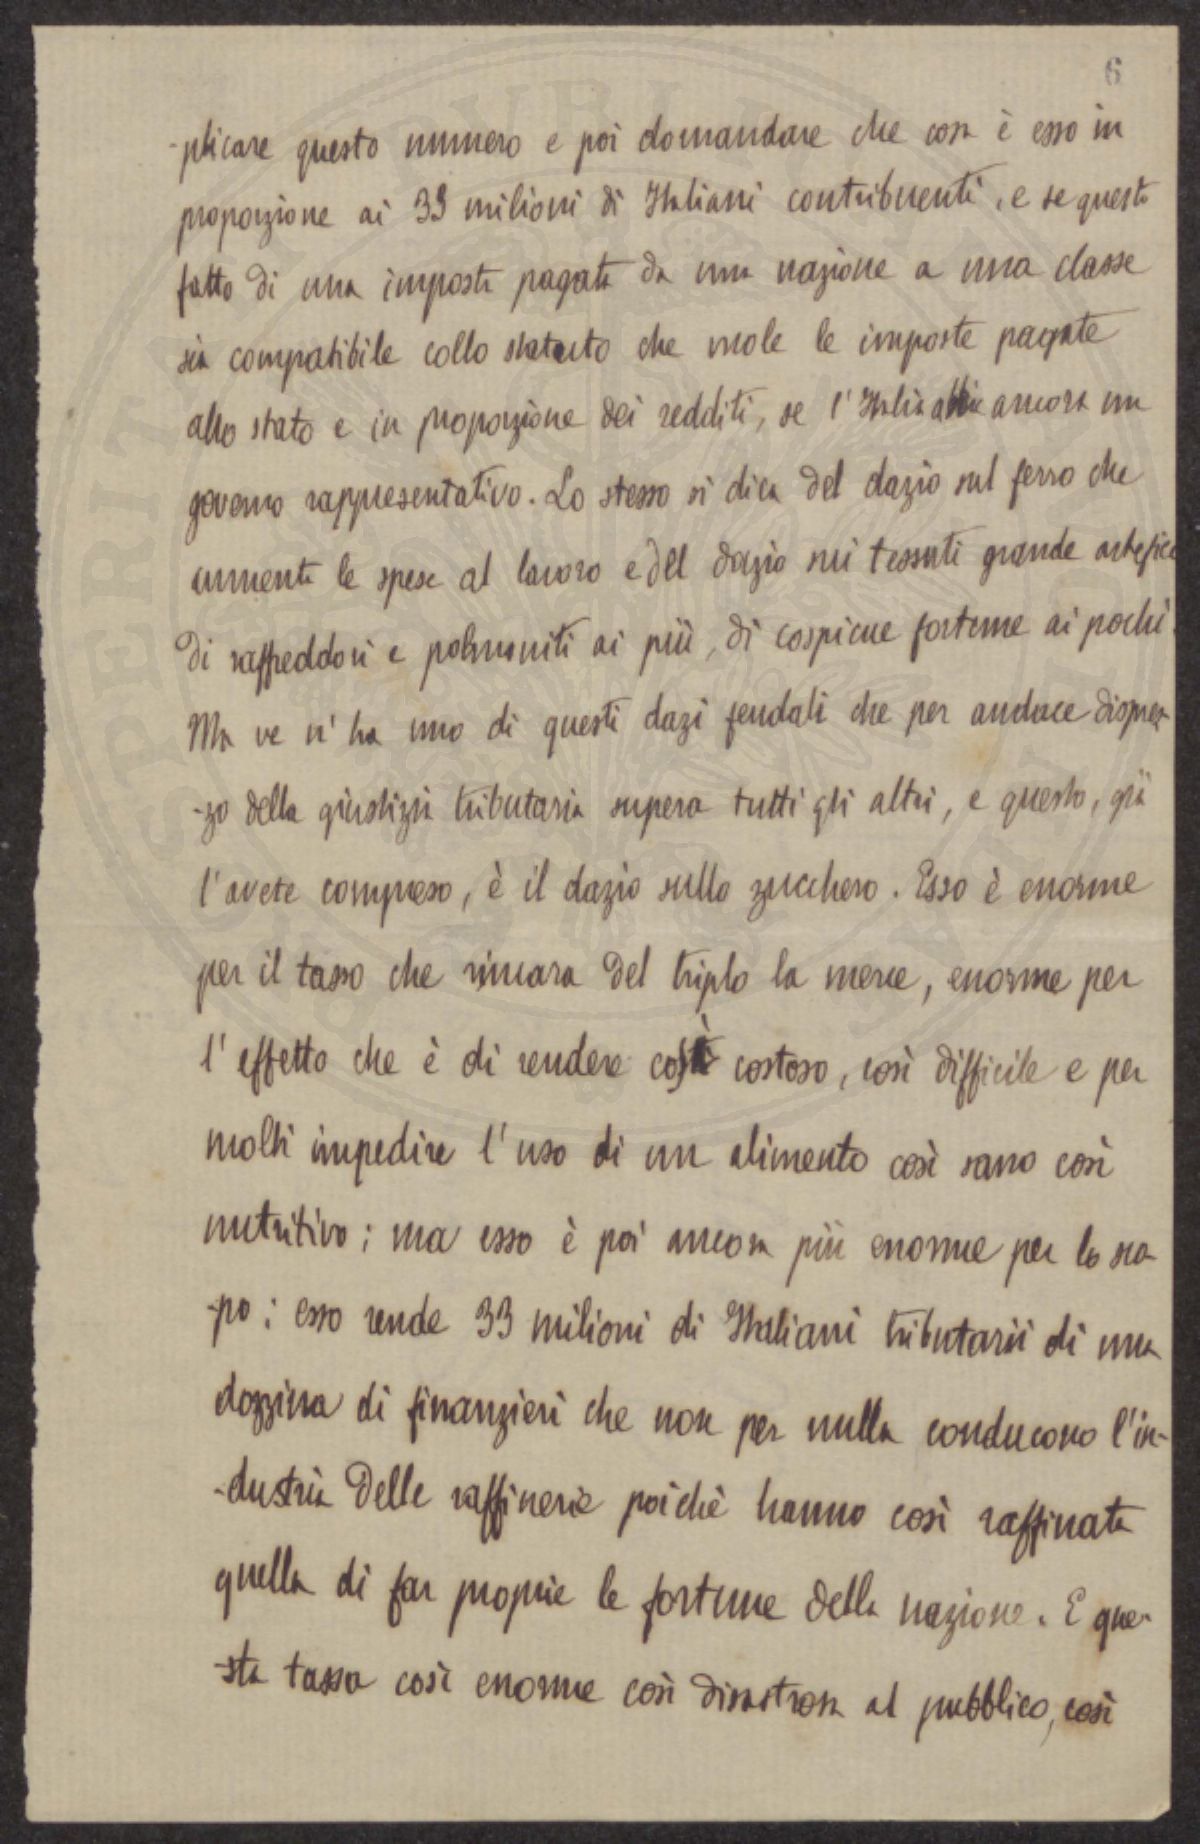 6
-plicare questo numero e poi domandare che cosa è esso in
proporzione ai 33 milioni di Italiani contribuenti, e se questo
fatto di una imposta pagata da una nazione a una classe
sia compatibile collo statuto che vuole le imposte pagate
allo stato e in proporzione dei redditi, se l'Italia abbia ancora un
governo rappresentativo. Lo stesso si dica del dazio sul ferro che
aumenta le spese al lavoro e del dazio sui tessuti grande artefice
di raffreddori e polmoniti ai più, di cospicue fortune ai pochi.
Ma ve n'ha uno di questi dazi feudali che per audace disprez-
-zo della giustizia tributaria supera tutti gli altri, e questo, già
l'avete compreso, è il dazio sullo zucchero. Esso è enorme
per il tasso che rincara del triplo la merce, enorme per
l'effetto che è di rendere così costoso, così difficile e per
molti impedire l'uso di un alimento così sano così
nutritivo; ma esso è poi ancora più enorme per lo sco-
-po: esso rende 33 milioni di Italiani tributarii di una
dozzina di finanzieri che non per nulla conducono l'in-
-dustria delle raffinerie poichè hanno così raffinata
quella di far proprie le fortune della nazione. E que-
-sta tassa così enorme così disastrosa al pubblico, così